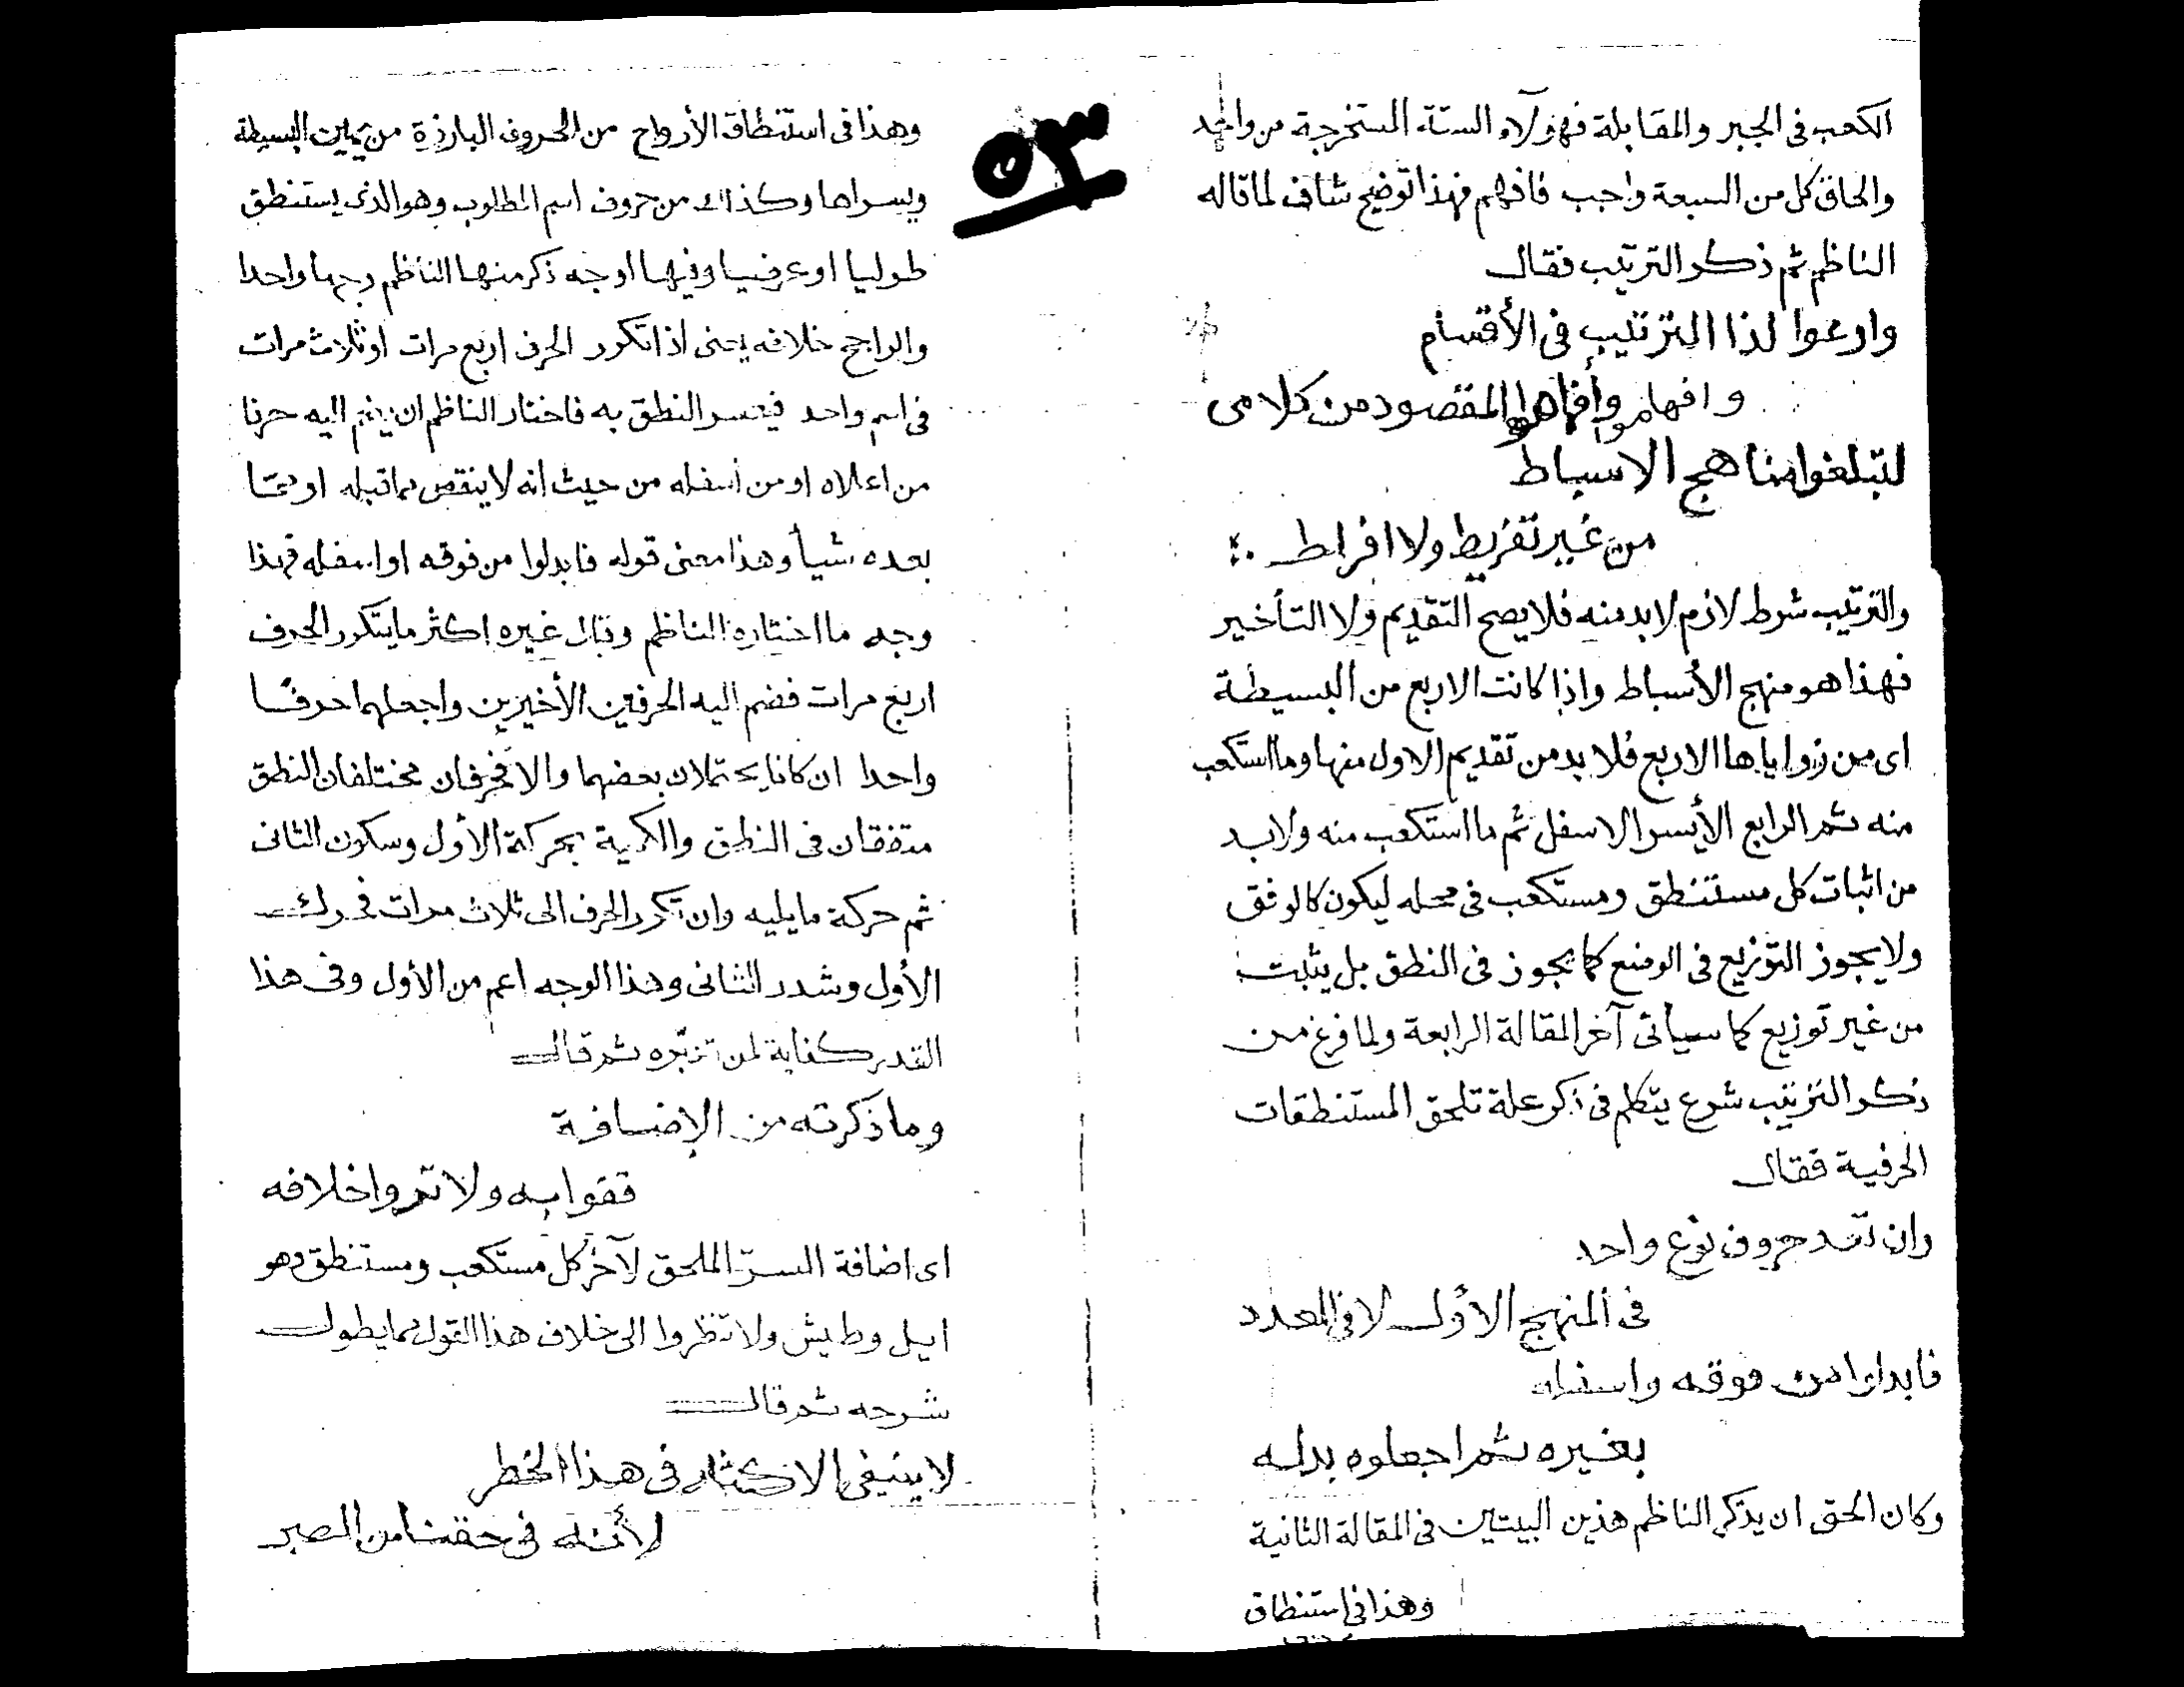 الكعب فى الجبر والمقابلة فهؤلآء الستة المستخرجة من واحد
والحاق كل من السبعة واجب فافهم فهذا توضيح شاف لما قاله
الناظم ثم ذكر الترتيب فقال
وارعوا لذا الترتيب فى الأقسام
وافهموا المقصود من كلامى
لتبلغوا مناهج الاسباط
من غير تفريط ولا افراط
والترتيب شرط لازم لابد منه فلا يصح التقديم ولا التأخير
فهذا هو منهج الأسباط واذا كانت الاربع من البسيطة
اى من زواياها الاربع فلابد من تقديم الاول منها وما استكعب
منه ثم الرابع الأيسر الاسفل ثم ما استكعب منه ولابد
من اثبات كل مستنطق ومستكعب فى محله ليكون كالوفق
ولا يجوز التوزيع فى الوضع كما يجوز فى النطق بل يثبت
من غير توزيع كما سيأتى آخر المقالة الرابعة ولما فرغ من
ذكر الترتيب شرع يتكلم فى ذكر علة تلحق المستنطقات
الحرفية فقال
وان تعد حروف نوع واحد
فى المنهج الأول لا فى العدد
فابدلوا من فوقه واسفله
بغيره ثم اجعلوه بدله
وكان الحق ان يذكر الناظم هذين البيتين فى المقالة الثانية
وهذا فى استنطاق
٥٣
وهذا فى استنطاق الأرواح من الحروف البارزة من يمين البسيطة
ويسراها وكذلك من حروف اسم المطلوب وهو الذى يستنطق
طوليا او عرضيا وفيها اوجه ذكر منها الناظم وجها واحدا
والراجح خلافه يعنى اذا تكرر الحرف اربع مرات او ثلاث مرات
فى اسم واحد فيعسر النطق به فاختار الناظم ان يضم اليه حرفا
من اعلاه او من أسفله من حيث انه لا ينقص مما قبله او مما
بعده شيأ وهذا معنى قوله فابدلوا من فوقه او اسفله فهذا
وجه ما اختاره الناظم وقال غيره اكثر ما يتكرر الحرف
اربع مرات فضم اليه الحرفين الأخيرين واجعلهما حرفًا
واحدا ان كانا يحتملان بعضهما والا فحرفان مختلفان النطق
متفقان فى النطق والكمية بحركة الأول وسكون الثانى
ثم حركة ما يليه وان تكرر الحرف الى ثلاث مرات فحرك
الأول وشدد الثانى وهذا الوجه اعم من الأول وفى هذا
القدر كفاية لمن تدبّره ثم قال
وما ذكرته من الإضافة
فقوا به ولا تروا خلافه
اى اضافة السر الملحق لآخر كل مستكعب ومستنطق وهو
ايل وطيش ولا تنظروا الى خلاف هذا القول مما يطول
شرحه ثم قال
لا ينبغى الاكثار فى هذا الخطر
لأنه فى حقنا من الصبر